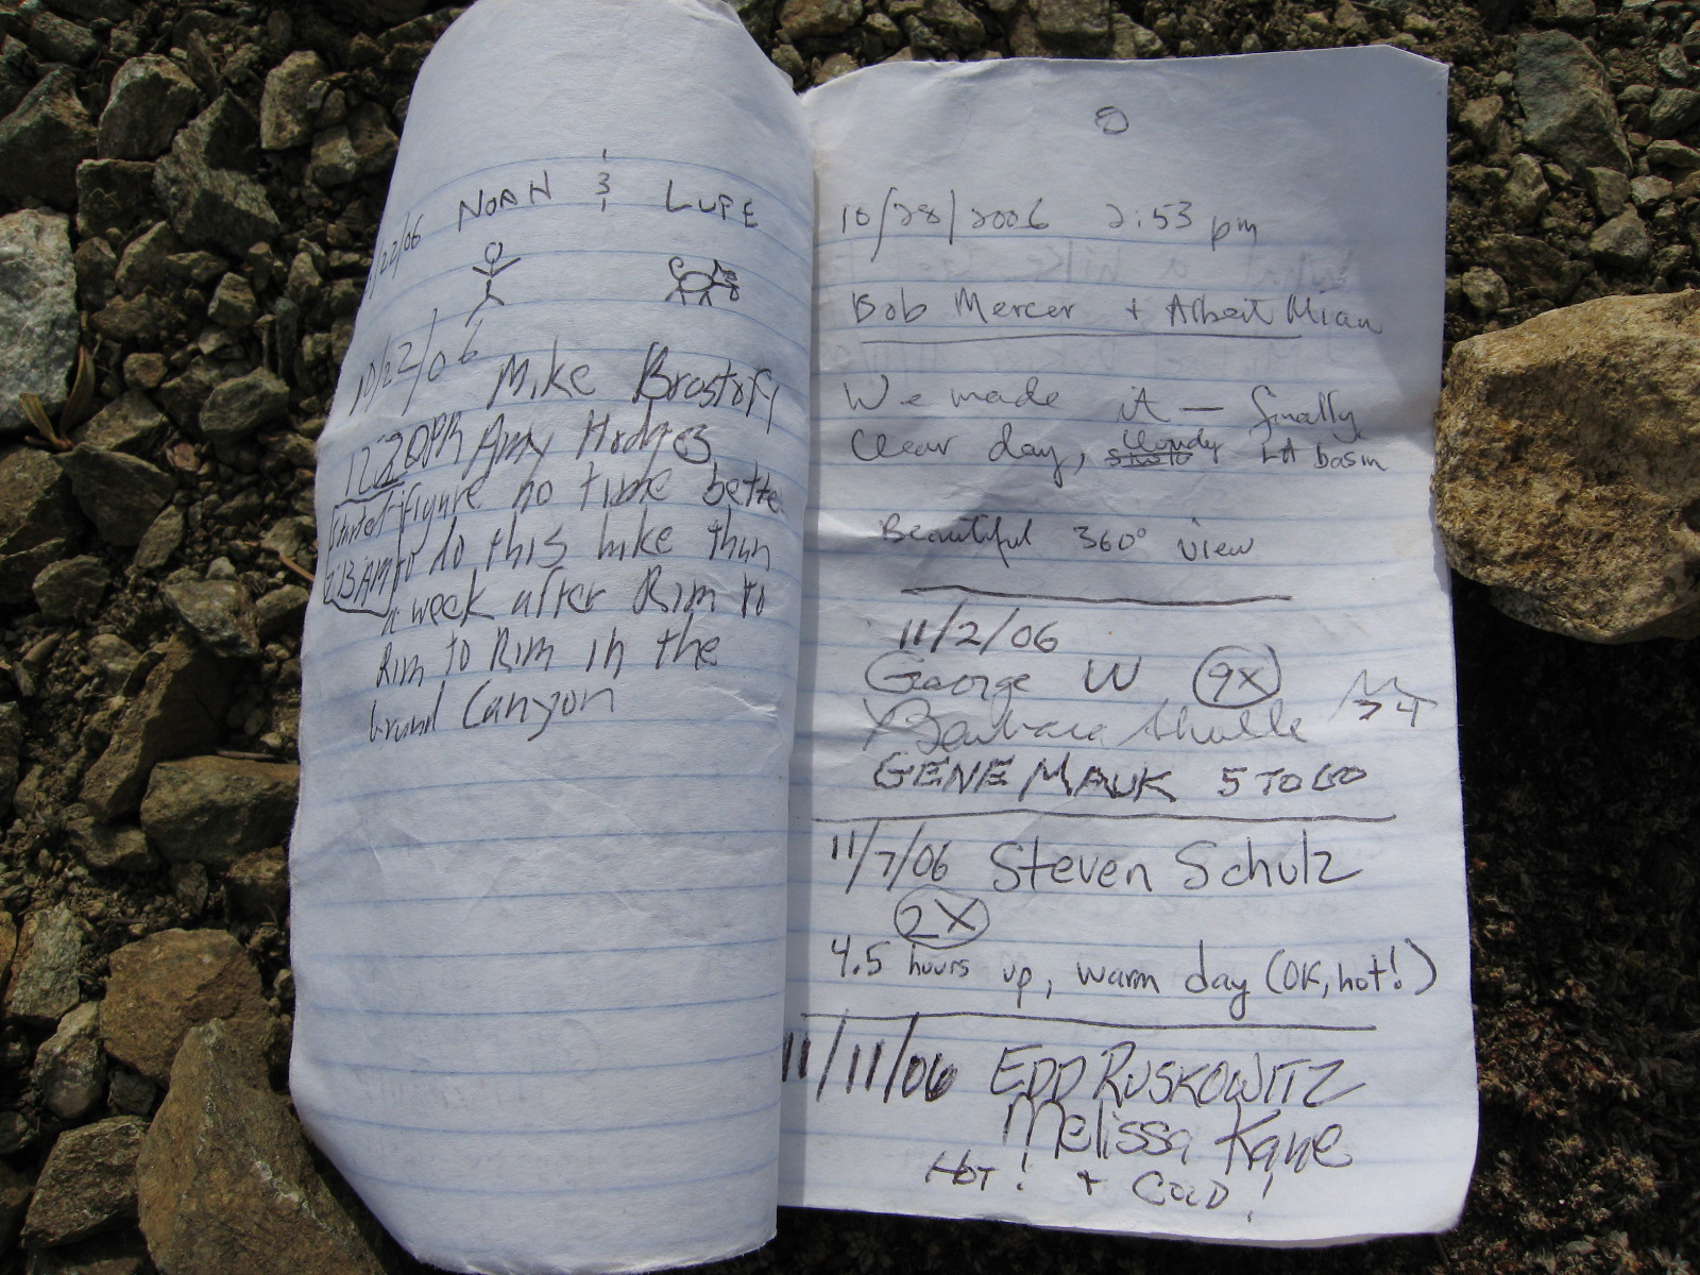 /22/06 NOAH & LUPE
10/22/06 Mike
12:20PM Amy Hodges
Started figure no time better
7:13 AM to do this hike than
a week after Rim to
Rim to Rim in the
Grand Canyon
10/28/2006 2:53 pm
Bob Mercer + Albert Mian
We made it — finally
Clear day, cloudy LA basin
Beautiful 360° view
11/2/06
George W 9X
Barbara
GENE MAUK 5 TO GO
11/7/06 Steven Schulz
2X
4.5 hours up, warm day (OK, hot!)
11/11/06 EDD RUSKOWITZ
Melissa Kane
HOT! + COLD!